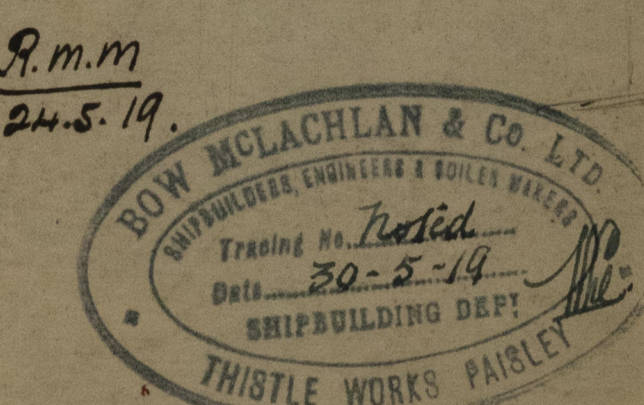 R.M.M
24.5.19.
BOW McLACHLAN & Co. LTD.
SHIPBUILDERS, ENGINEERS & BOILER MAKERS
Tracing No. Noted
Date 30-5-19
SHIPBUILDING DEPT
THISTLE WORKS PAISLEY